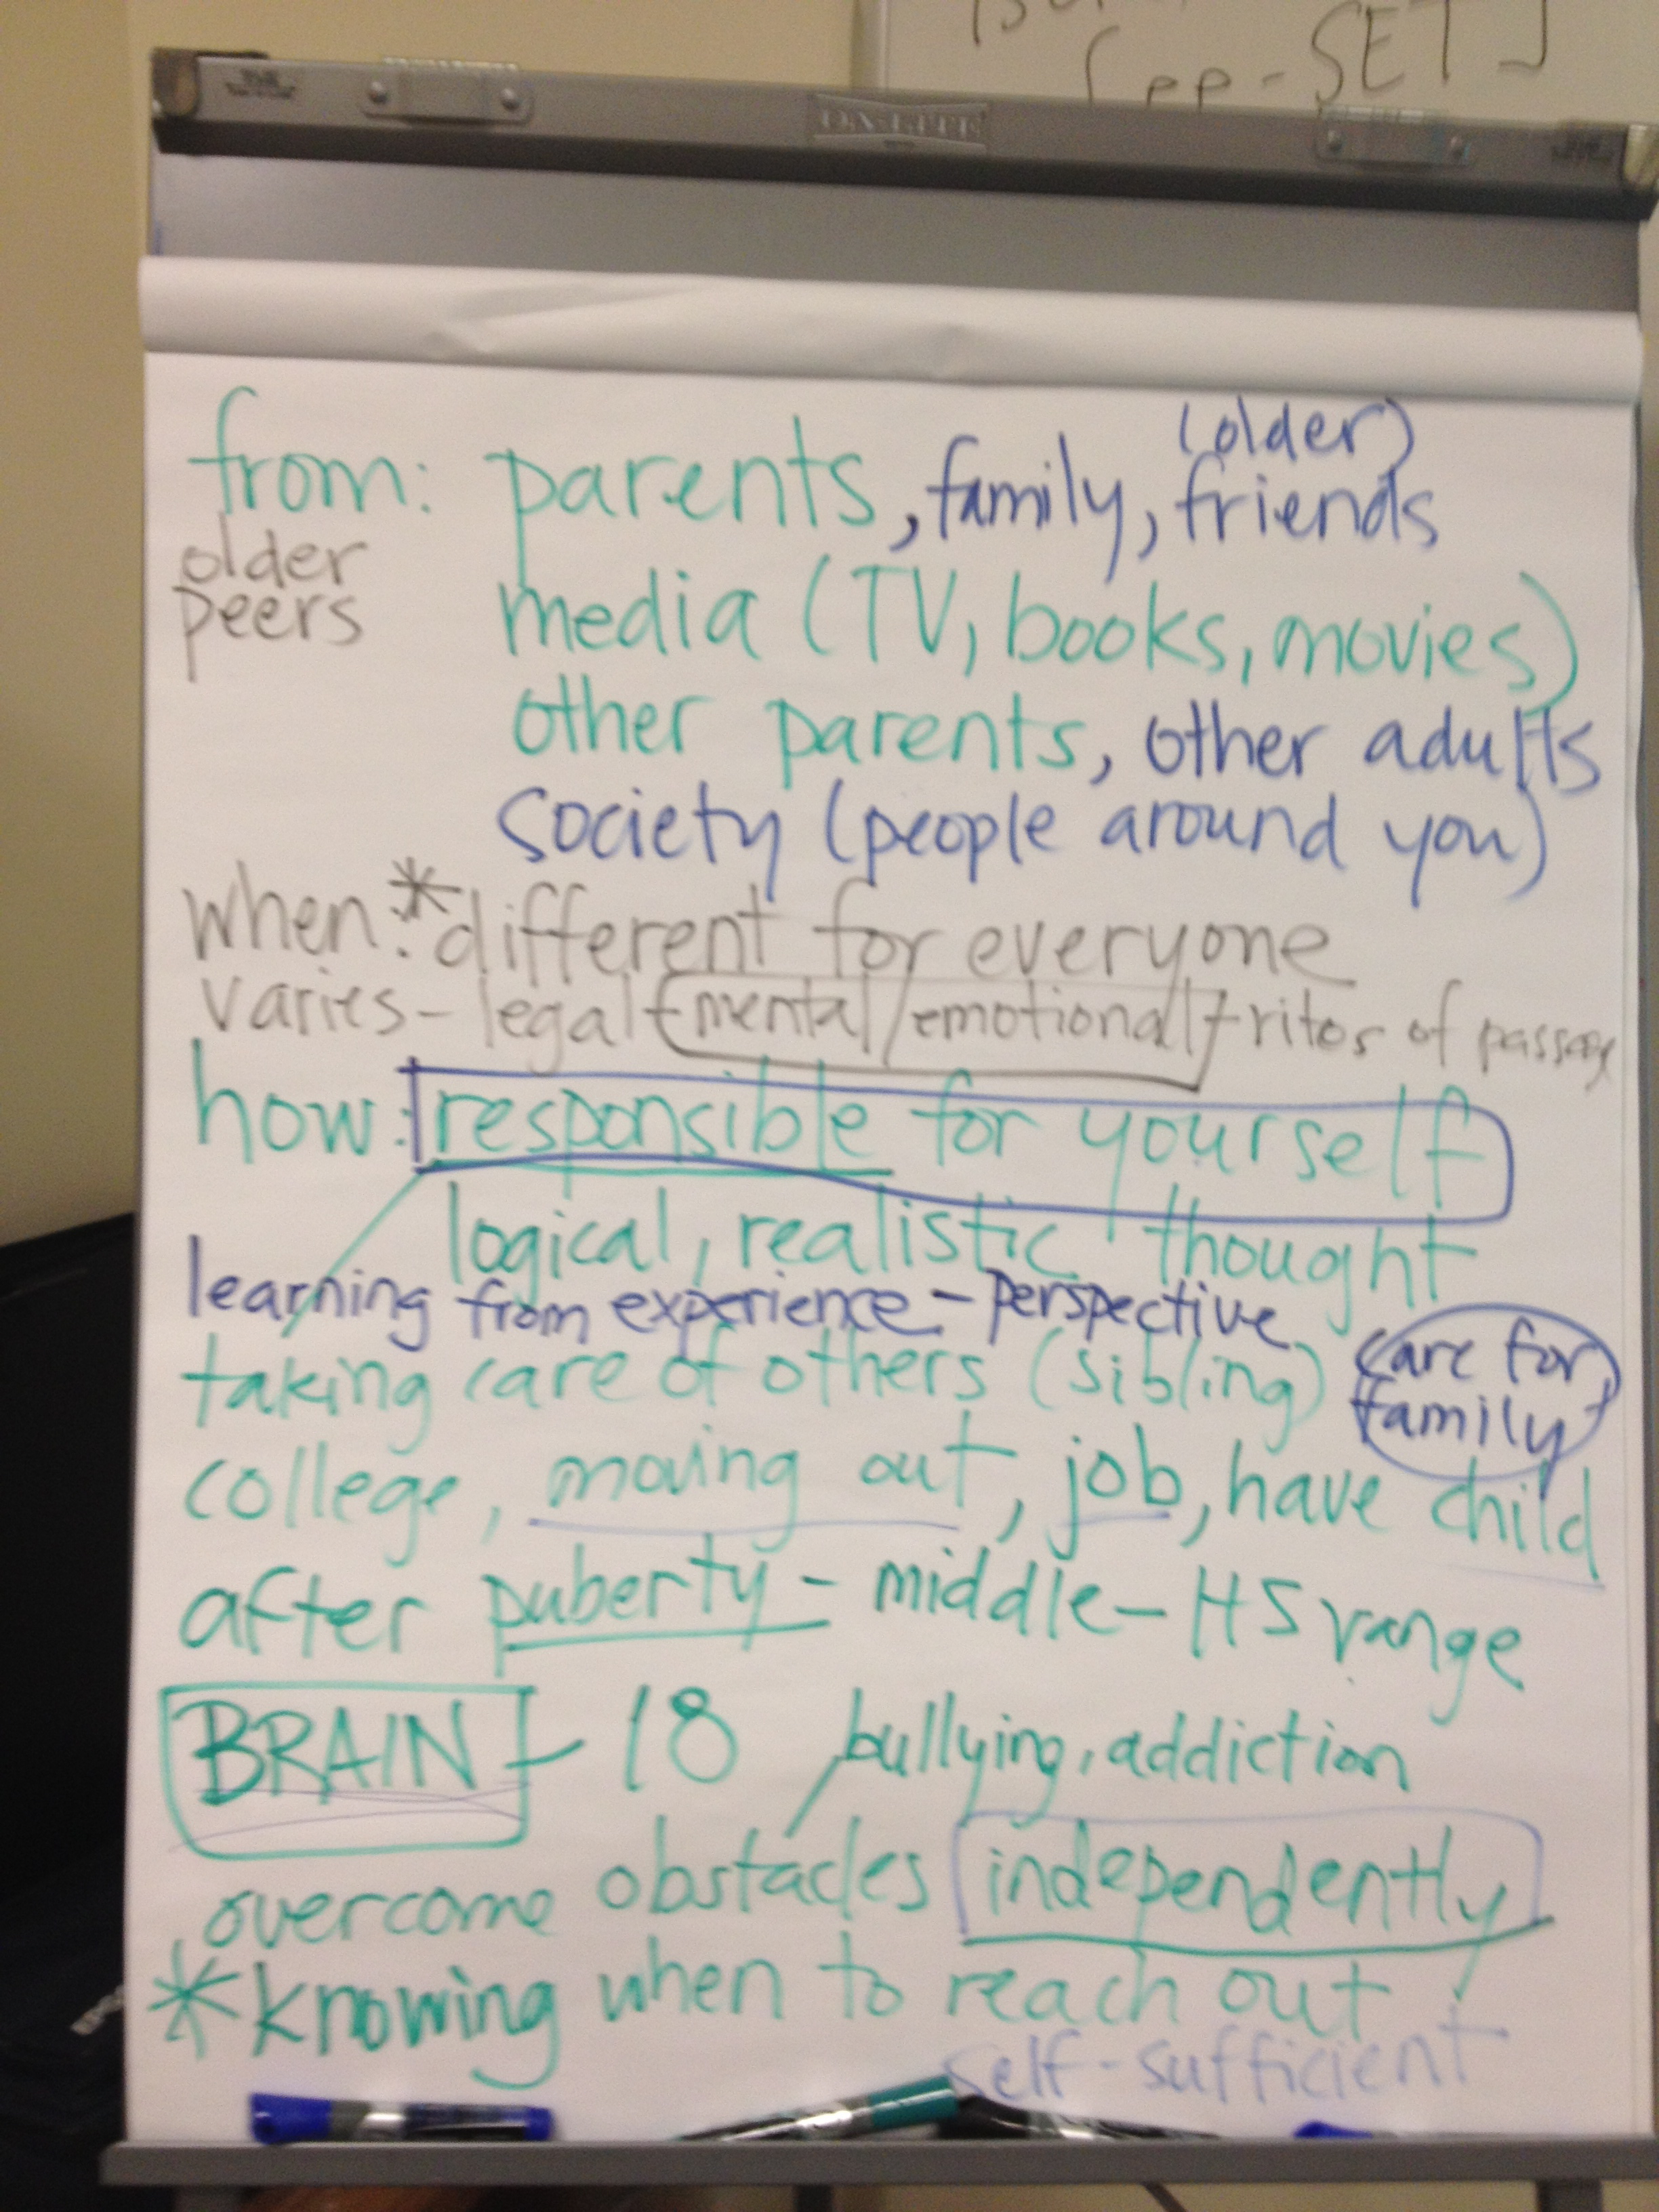 SET]
DA-LITE
(older)
from: parents, family, friends
older
peers
media (TV, books, movies)
other parents, other adults
society (people around you)
when: *different for everyone
varies - legal - mental/emotional - rites of passage
how: responsible for yourself
logical, realistic thought
learning from experience - perspective
taking care of others (sibling)
care for
family
college, moving out, job, have child
after puberty - middle - HS range
BRAIN - 18
bullying, addiction
overcome obstacles independently
*knowing when to reach out
self-sufficient